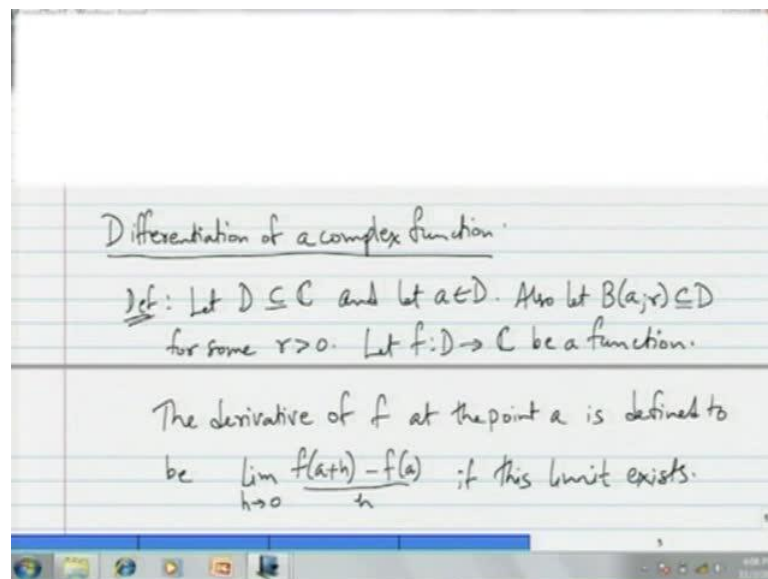 Differentiation of a complex function.
Def: Let D ⊆ C and let a∈D. Also let B(a;r) ⊆ D
for some r>0. Let f:D→ C be a function.
The derivative of f at the point a is defined to
be lim h→0 f(a+h) - f(a) / h if this limit exists.